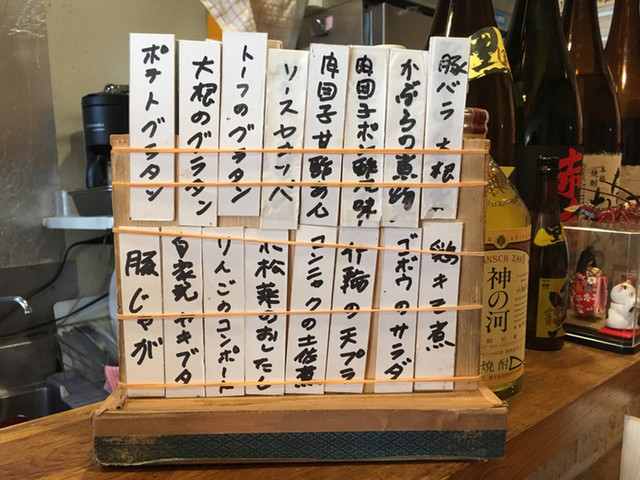 豚バラ大根
かぶらの煮物
肉団子ポン酢風味
肉団子甘酢あん
ソースキャベツ
トーフのグラタン
大根のグラタン
ポテトグラタン
鶏キモ煮
ゴボウのサラダ
竹輪の天プラ
コンニャクの土佐煮
小松菜のおひたし
りんごのコンポート
自家製ヤキブタ
豚じゃが
神の河
焼酎